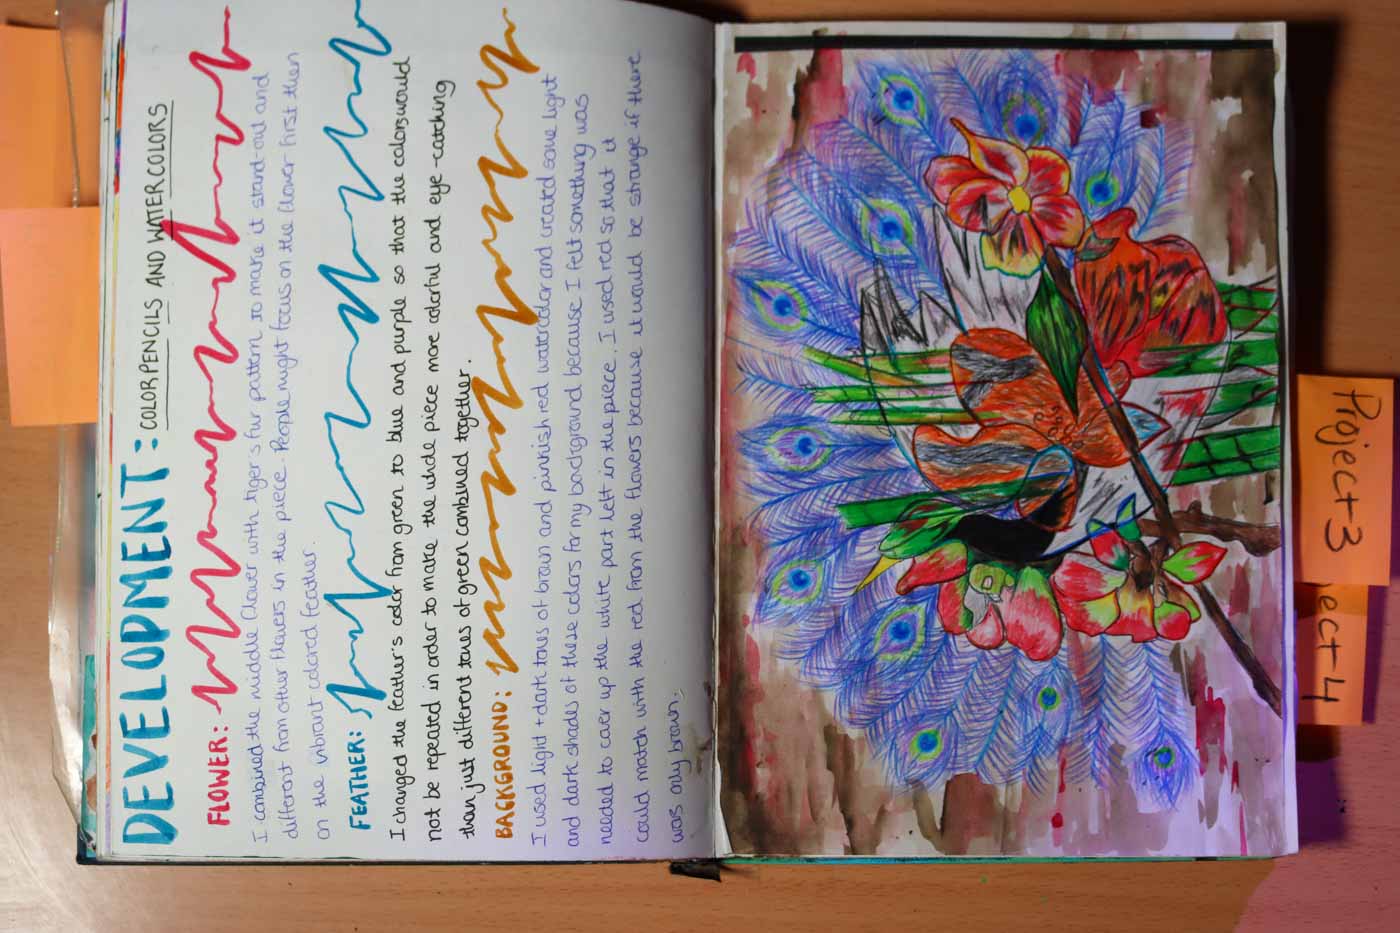 DEVELOPMENT: COLORPENCILS AND WATERCOLORS
FLOWER:
I combined the middle flower with tiger's fur pattern to make it stand-out and
different from other flowers in the piece. People might focus on the flower first then
on the vibrant colored feather.
FEATHER:
I changed the feather's color from green to blue and purple so that the colors would
not be repeated in order to make the whole piece more colorful and eye-catching
than just different tones of green combined together.
BACKGROUND:
I used light + dark tones of brown and pinkish red watercolor and created some light
and dark shades of these colors for my background because I felt something was
needed to cover up the white part left in the piece. I used red so that it
could match with the red from the flowers because it would be strange if there
was only brown.
Project 3
ject 4